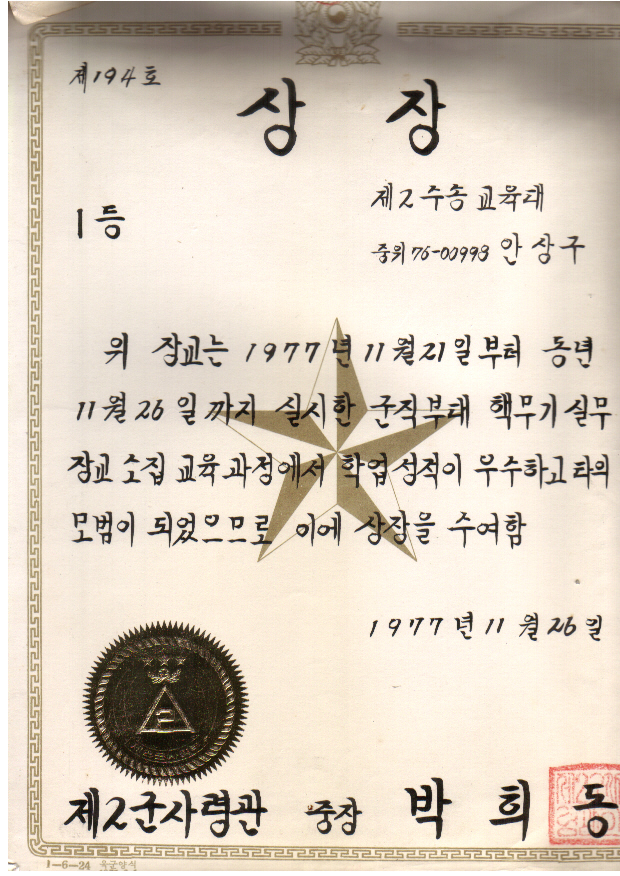 제194호
상 장
1등
제2수송교육대
중위 76-00993 안상구
위 장교는 1977년 11월 21일부터 동년
11월 26일까지 실시한 군직부대 핵무기 실무
장교 소집 교육과정에서 학업성적이 우수하고 타의
모범이 되었으므로 이에 상장을 수여함
1977년 11월 26일
제2군사령관 중장 박희동
1-6-24 육군양식